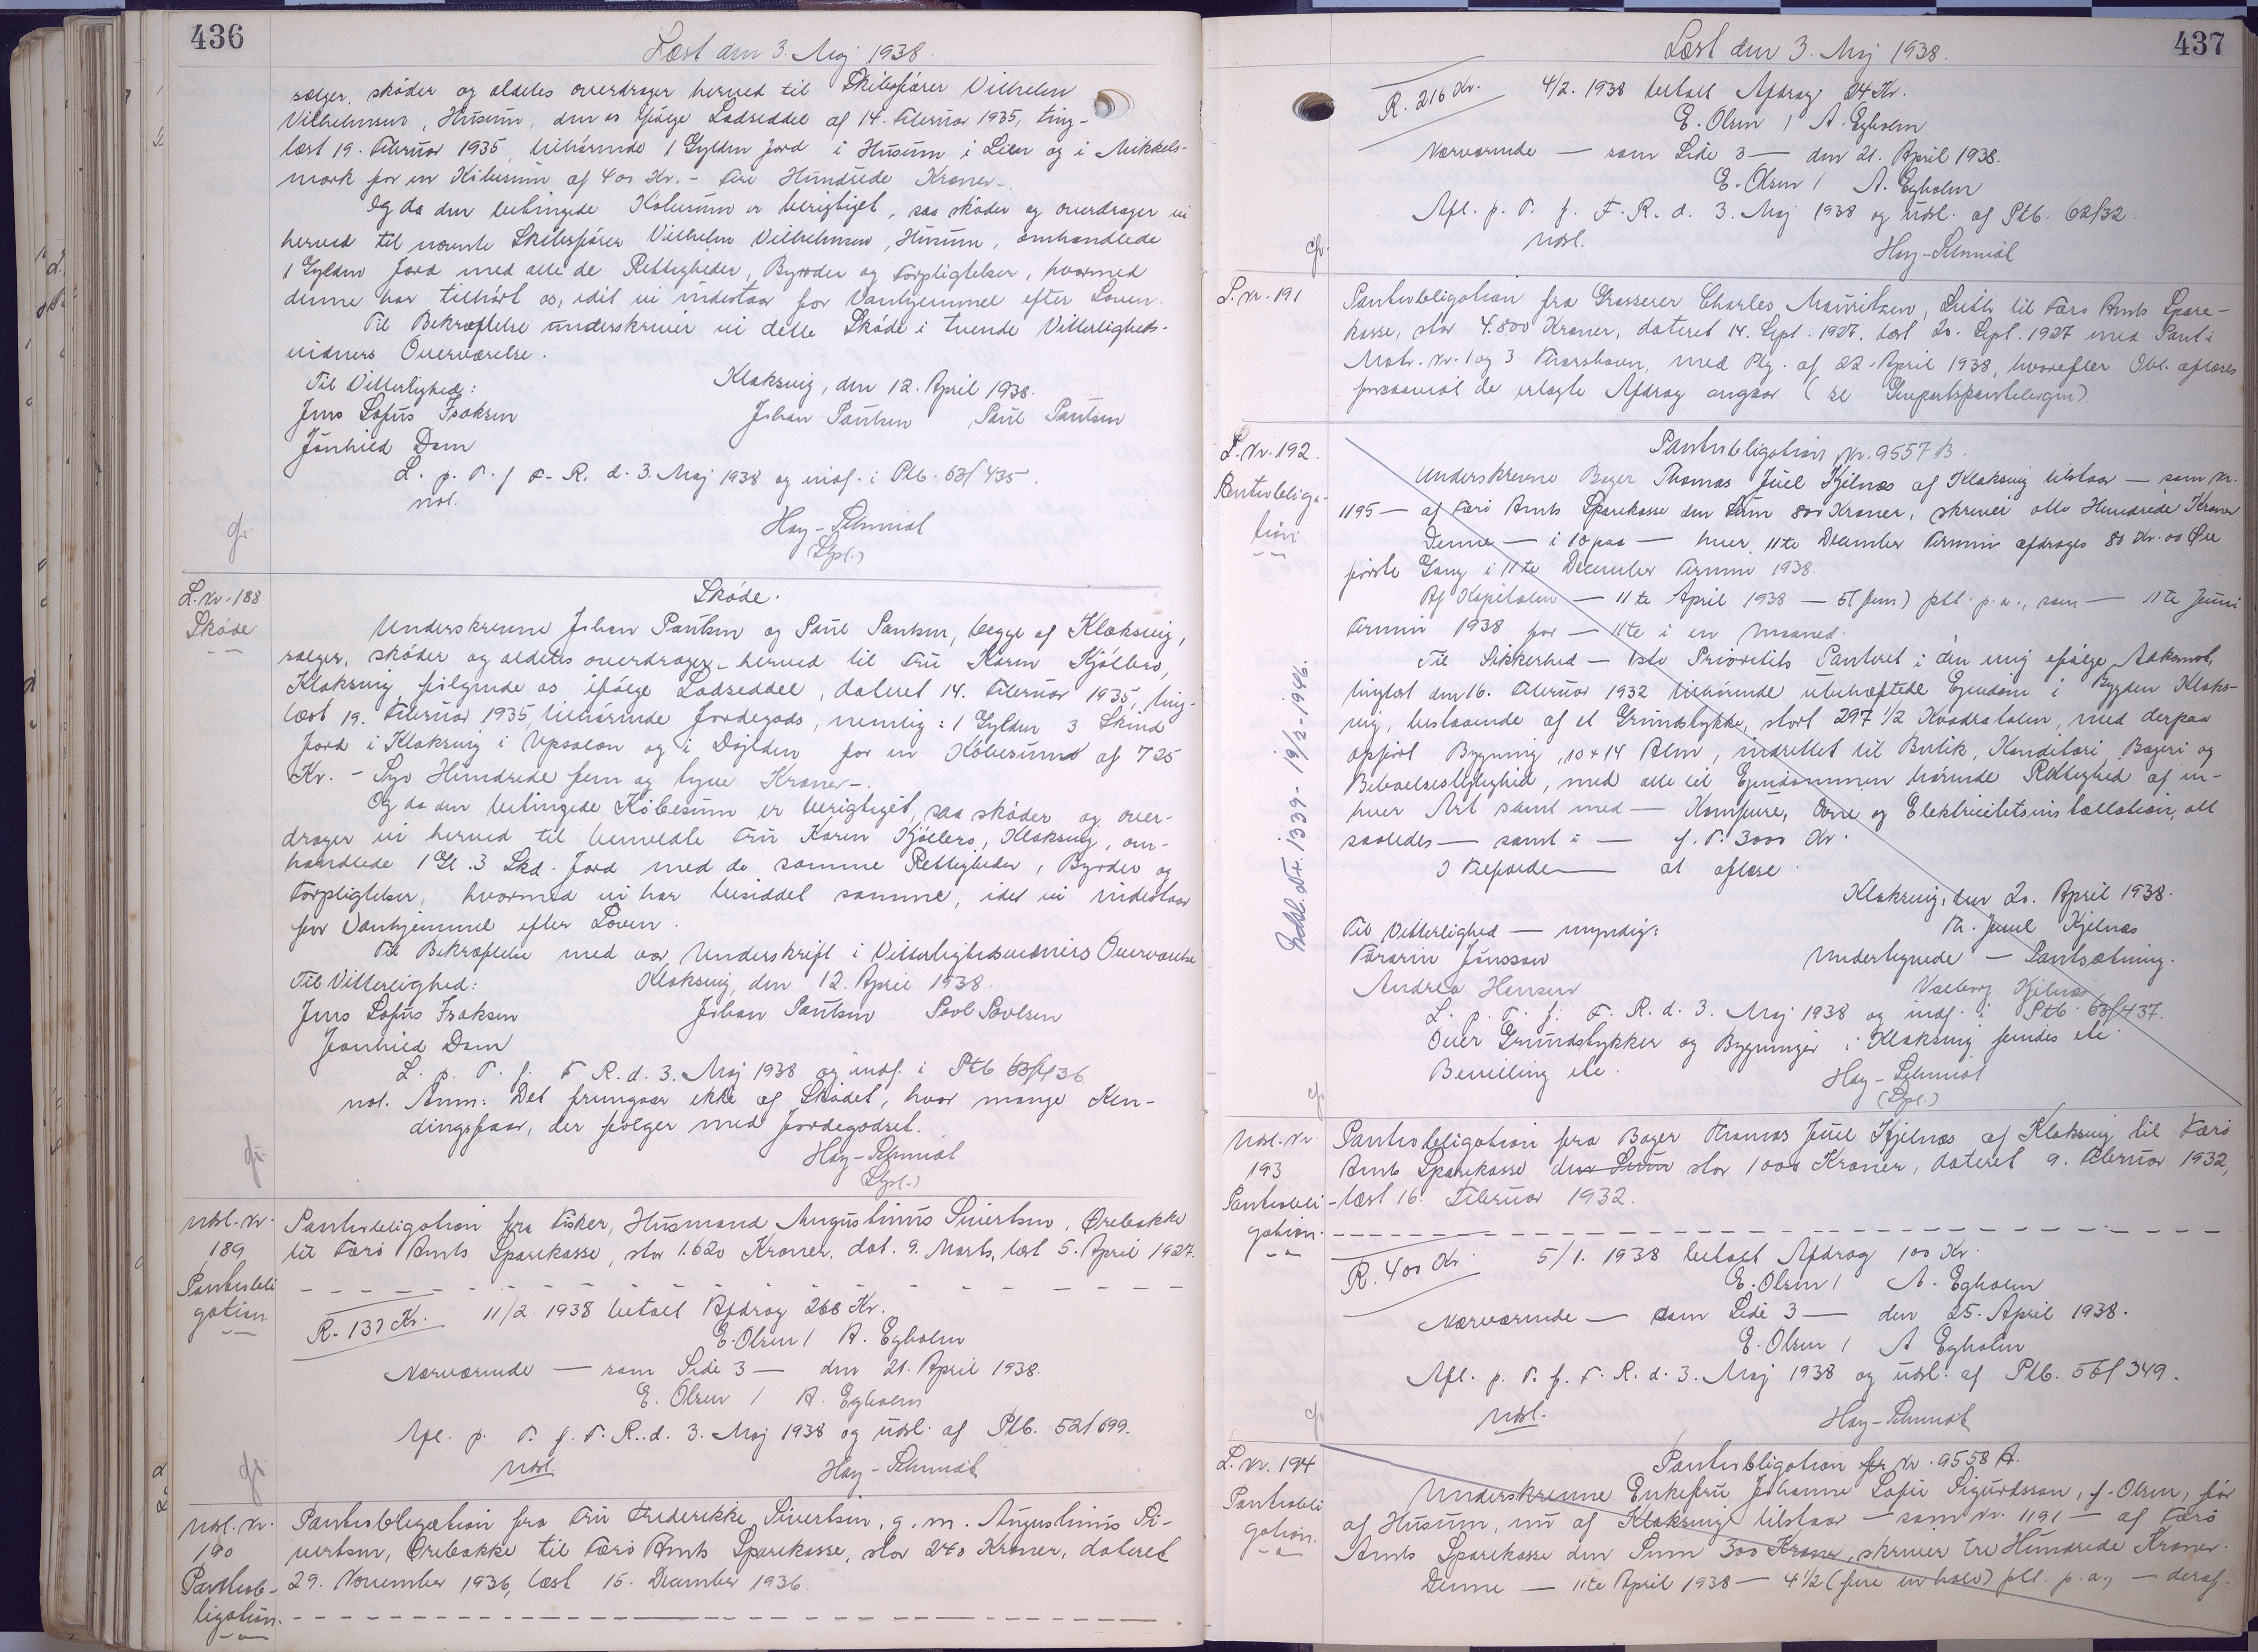 436
Læst den 3. Maj 1938.
sælger, skøder og aldeles overdrager herved til Skibsfører Vilhelm
Vilhelmsen, Husum, den os ifølge Lodseddel af 14. Februar 1935, ting-
læst 19. Februar 1935, tilhørende 1 Gylden Jord i Husum i Lien og i Mikkels-
mark for en Købesum af 400 Kr. - Fire Hundrede Kroner -.
Og da den betingede Købesum er berigtiget, saa skøder og overdrager vi
herved til nævnte Skibsfører Vilhelm Vilhelmsen, Husum, omhandlede
1 Gylden Jord med alle de Rettigheder, Byrder og Forpligtelser, hvormed
denne har tilhørt os, idet vi indestaar for Vanhjemmel efter Loven.
Til Bekræftelse underskriver vi dette Skøde i tvende Vitterligheds-
vidners Overværelse.
Til Vitterlighed:
Klaksvig, den 12. April 1938.
Jens Lofus Isaksen
Johan Paulsen Paul Paulsen
Jonhild Dam
L. p. T. f. F. R. d. 3. Maj 1938 og indf. i Ptb. 63/435.
not.
Hay-Schmidt
(Spl.)
gr.
L. Nr. 188
Skøde
Skøde.
Underskrevne Johan Paulsen og Paul Paulsen, begge af Klaksvig,
sælger, skøder og aldeles overdrager herved til Fru Karen Kjølbro,
Klaksvig, følgende os ifølge Lodseddel, dateret 14. Februar 1935, ting-
læst 19. Februar 1935, tilhørende Jordegods, nemlig: 1 Gylden 3 Skind
Jord i Klaksvig i Upsalon og i Dajlden for en Købesum af 725
Kr. - Syv Hundrede fem og tyve Kroner -.
Og da den betingede Købesum er berigtiget, saa skøder og over-
drager vi herved til bemeldte Fru Karen Kjølbro, Klaksvig, om-
handlede 1 Gl. 3 Skd. Jord med de samme Rettigheder, Byrder og
Forpligtelser, hvormed vi har besiddet samme, idet vi indestaar
for Vanhjemmel efter Loven.
Til Bekræftelse med vor Underskrift i Vitterlighedsvidners Overværelse
Til Vitterlighed:
Klaksvig, den 12. April 1938.
Jens Lofus Isaksen
Johan Paulsen Povl Povlsen
Jonhild Dam
L. p. T. f. F. R. d. 3. Maj 1938 og indf. i Ptb 63/436
not. Anm: Det fremgaar ikke af Skødet, hvor mange Ken-
dingsfaar, der følger med Jordegodset.
Hay-Schmidt
(Spl.)
gr.
Udsl. Nr.
189
Pantobli
gation
Pantobligation fra Fisker, Husmand Augustinus Sivertsen, Ørebakke
til Færø Amts Sparekasse, stor 1.620 Kroner, dat. 9. Marts, læst 5. April 1927.
R. 137 Kr. 11/2 1938 betalt Afdrag 268 Kr.
E. Olsen / A. Egholm
Nærværende — som Side 3 — den 21. April 1938.
E. Olsen / A. Egholm
Afl. p. T. f. F. R. d. 3. Maj 1938 og udsl. af Ptb. 52/699.
Udsl.
Hay-Schmidt
gr.
Udsl. Nr.
190
Pantob-
ligation.
Pantobligation fra Fru Frederikke Sivertsen, g. m. Augustinus Si-
vertsen, Ørebakke til Færø Amts Sparekasse, stor 240 Kroner, dateret
29. November 1936, læst 15. December 1936.
437
Læst den 3. Maj 1938.
R. 216 Kr. 4/2. 1938 betalt Afdrag 24 Kr.
E. Olsen / A. Egholm
Nærværende — som Side 3 — den 21. April 1938.
E. Olsen / A. Egholm
Afl. p. T. f. F. R. d. 3. Maj 1938 og udsl. af Ptb. 62/32.
Udsl.
Hay-Schmidt
gr.
P. Nr. 191
Pantobligation fra Grosserer Charles Mouritzen, Leith, til Færø Amts Spare-
kasse, stor 4.800 Kroner, dateret 14. Sept. 1927, læst 20. Sept. 1927 med Pant i
Matr. Nr. 1 og 3 Thorshavn, med Ptg. af 22. April 1938, hvorefter Obl. aflæses
forsaavidt de erlagte Afdrag angaar (se Genpartspantebogen)
L. Nr. 192.
Pantobliga-
tion
Pantobligation Nr. 9557 B.
Underskrevne Bager Thomas Juel Kjelnæs af Klaksvig tilstaar — som Nr.
1195 — af Færø Amts Sparekasse den Sum 800 Kroner, skriver otte Hundrede Kroner
Denne — i 10 paa — hver 11te December Termin afdrages 80 Kr. 00 Øre
første Gang i 11te December Termin 1938.
Af Kapitalen — 11te April 1938 — 5 (fem) pct. p. a., som — 11te Juni
Termin 1938 for — 11te i en Maaned.
Til Sikkerhed — 1ste Prioritets Panteret i den mig ifølge Adkomst,
tinglæst den 16. Februar 1932 tilhørende ubehæftede Ejendom i Bygden Klaks-
vig, bestaaende af et Grundstykke, stort 297 1/2 Kvadratalen, med derpaa
opført Bygning, 10 x 14 Alen, indrettet til Butik, Konditori, Bageri og
Beboelseslejlighed, med alle til Ejendommen hørende Rettighed af en-
hver Art samt med — Komfure, Ovne og Elektricitetsinstallation, alt
saaledes — samt i — f. T. 3000 Kr.
I Tilfælde — at aflæse.
Klaksvig, den 20. April 1938.
Til Vitterlighed — myndig:
Th. Juul Kjelnæs
Tórarin Jónsson
Undertegnede — Pantsætning.
Andrea Hansen
Valborg Kjelnæs
L. p. T. f. F. R. d. 3. Maj 1938 og indf. i Ptb. 63/437.
Over Grundstykker og Bygninger i Klaksvig findes ell.
Bevilling ell.
Hay-Schmidt
(Spl.)
gr.
Udsl. Nr. 1339 - 19/2-1946.
Udsl. Nr.
193
Pantobli-
gation.
Pantobligation fra Bager Thomas Juul Kjelnæs af Klaksvig til Færø
Amts Sparekasse den Sum stor 1000 Kroner, dateret 9. Februar 1932,
læst 16. Februar 1932.
R. 400 Kr 5/1. 1938 betalt Afdrag 100 Kr.
E. Olsen / A. Egholm
Nærværende — som Side 3 — den 25. April 1938.
E. Olsen / A Egholm
Afl. p. T. f. F. R. d. 3. Maj 1938 og udsl. af Ptb. 56/349.
Udsl.
Hay-Schmidt
gr.
L. Nr. 194
Pantobli
gation.
Pantobligation Nr. 9558 A.
Underskrevne Enkefru Johanne Sofie Sigurdsson, f. Olsen, før
af Husum, nu af Klaksvig tilstaar — som Nr. 1191 — af Færø
Amts Sparekasse den Sum 300 Kroner, skriver tre Hundrede Kroner.
Denne — 11te April 1938 — 4 1/2 (fire en halv) pct. p. a., — deraf.